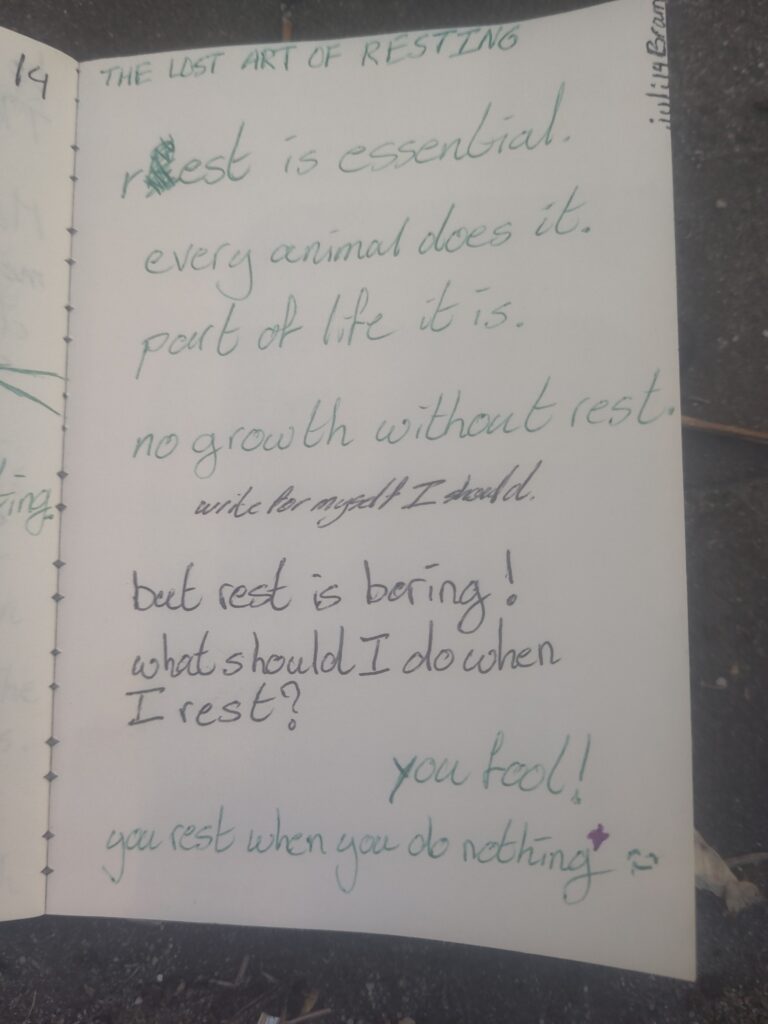 14
THE LOST ART OF RESTING
rest is essential.
every animal does it.
part of life it is.
no growth without rest.
write for myself I should.
but rest is boring!
what should I do when
I rest?
you fool!
you rest when you do nothing